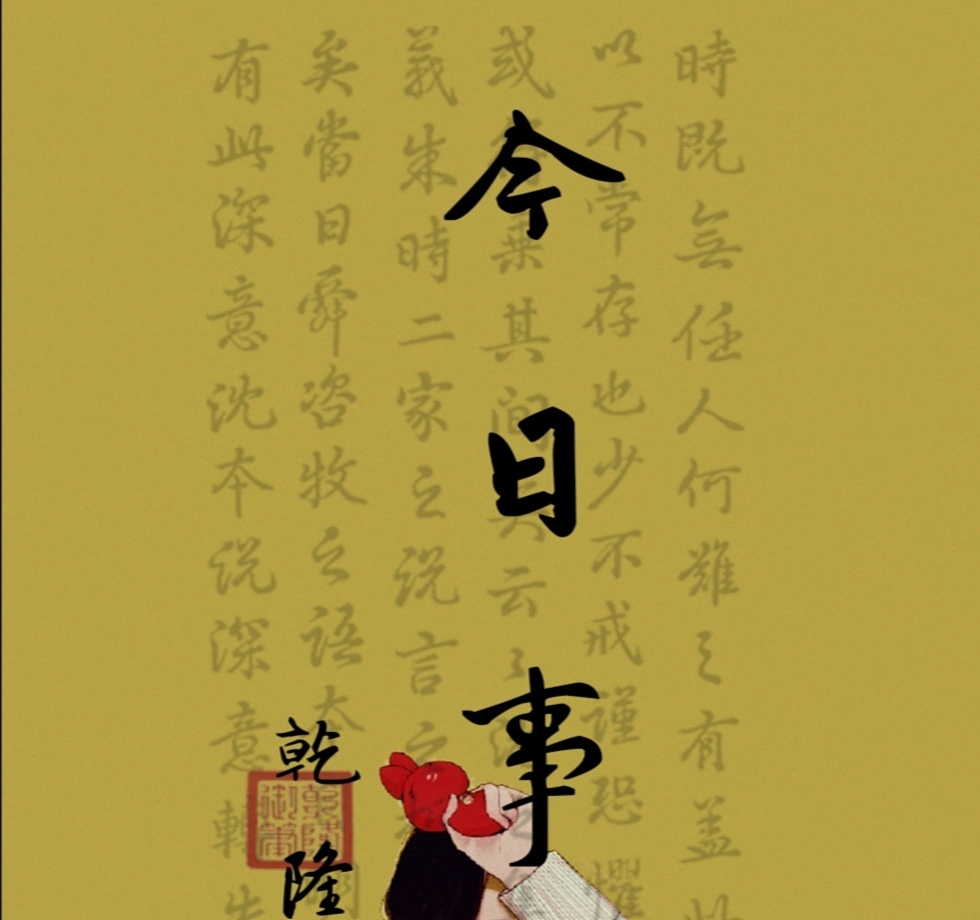 今日事
時既無任人何難之有盖此
以不常存也少不戒謹恐懼
或乘其間云
義朱時二家之説言之
矣當日舜咨牧之語本
有此深意沈本説深意轉
乾隆
乾隆御筆